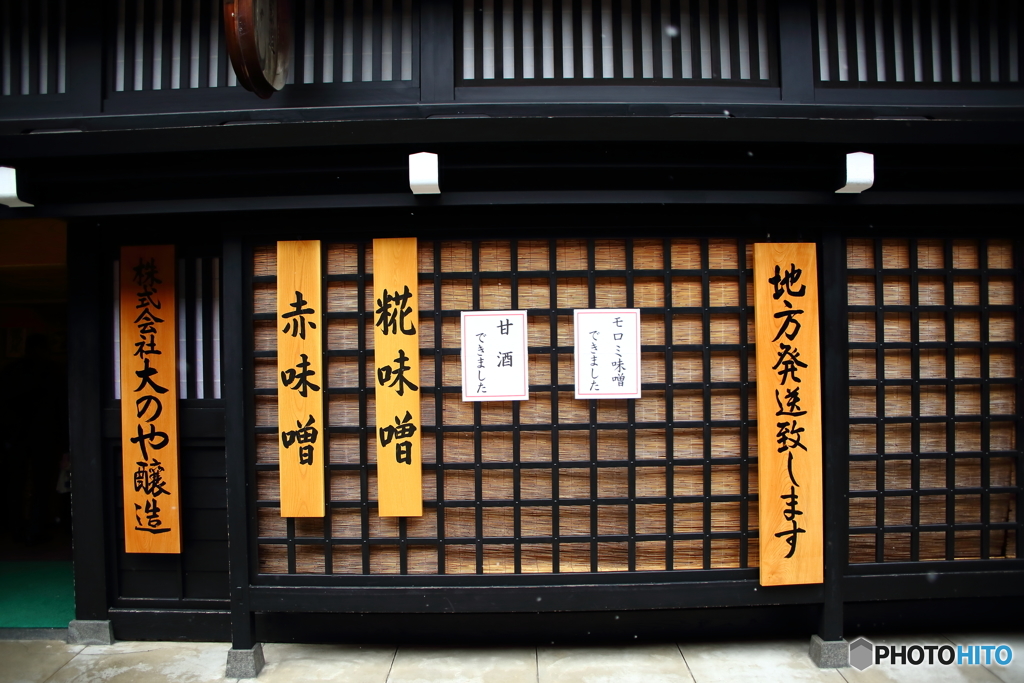 株式会社大のや醸造
赤味噌
糀味噌
甘酒
できました
モロミ味噌
できました
地方発送致します
PHOTOHITO